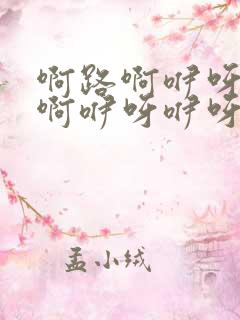 啊路啊咿呀
啊咿呀咿呀
孟小绒